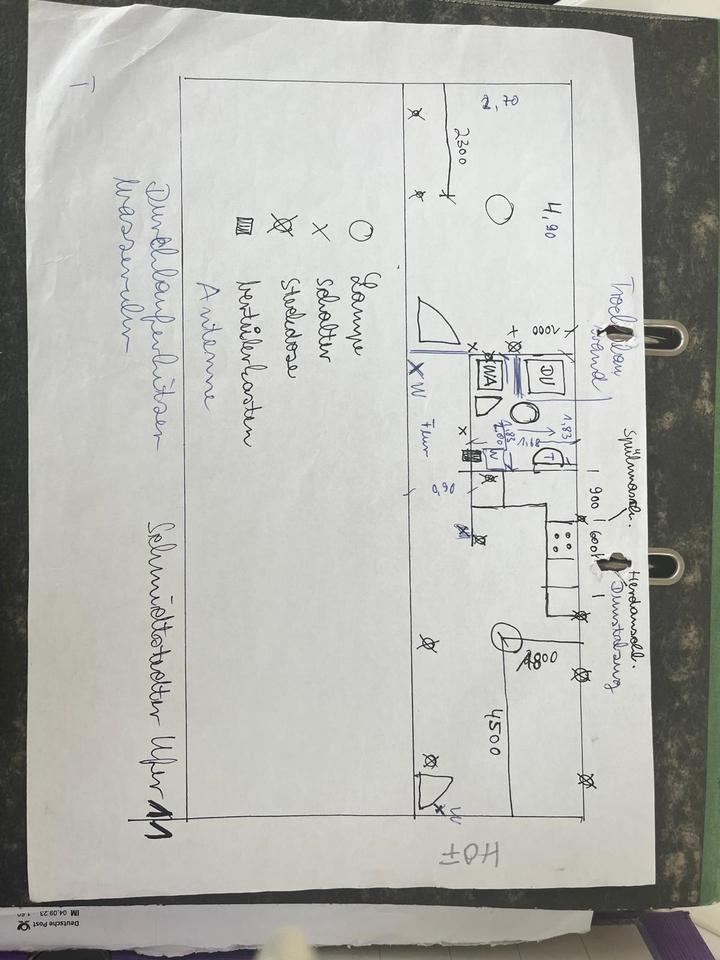 Trockenbau
wand
Spülmasch.
Herdanschl.
Dunstabzug
900
600
4,90
1000
DU
1,83
2300
WA
1,83
T
W
1800
4500
Flur
0,90
W
HOF
W
Lampe
Schalter
Steckdose
Verteilerkasten
Antenne
Durchlauferhitzer
Wasseruhr
Schmidtstedter Ufer 11
I
Deutsche Post
IM 04.09.23 1,60